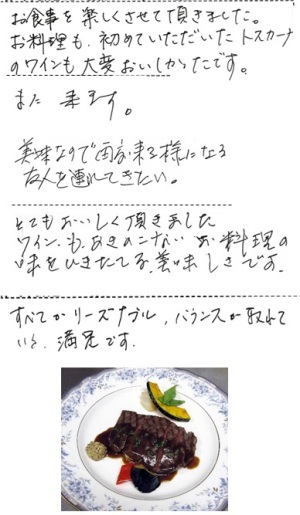 お食事を楽しくさせて頂きました。
お料理も、初めていただいたトスカーナ
のワインも大変おいしかったです。
また 来ます。
美味なので 来る様になる
友人を連れてきたい。
とてもおいしく頂きました
ワインも、あきのこない お料理の
味をひきたてる、美味しさです。
すべてがリーズナブル、バランスが取れて
いて、満足です。